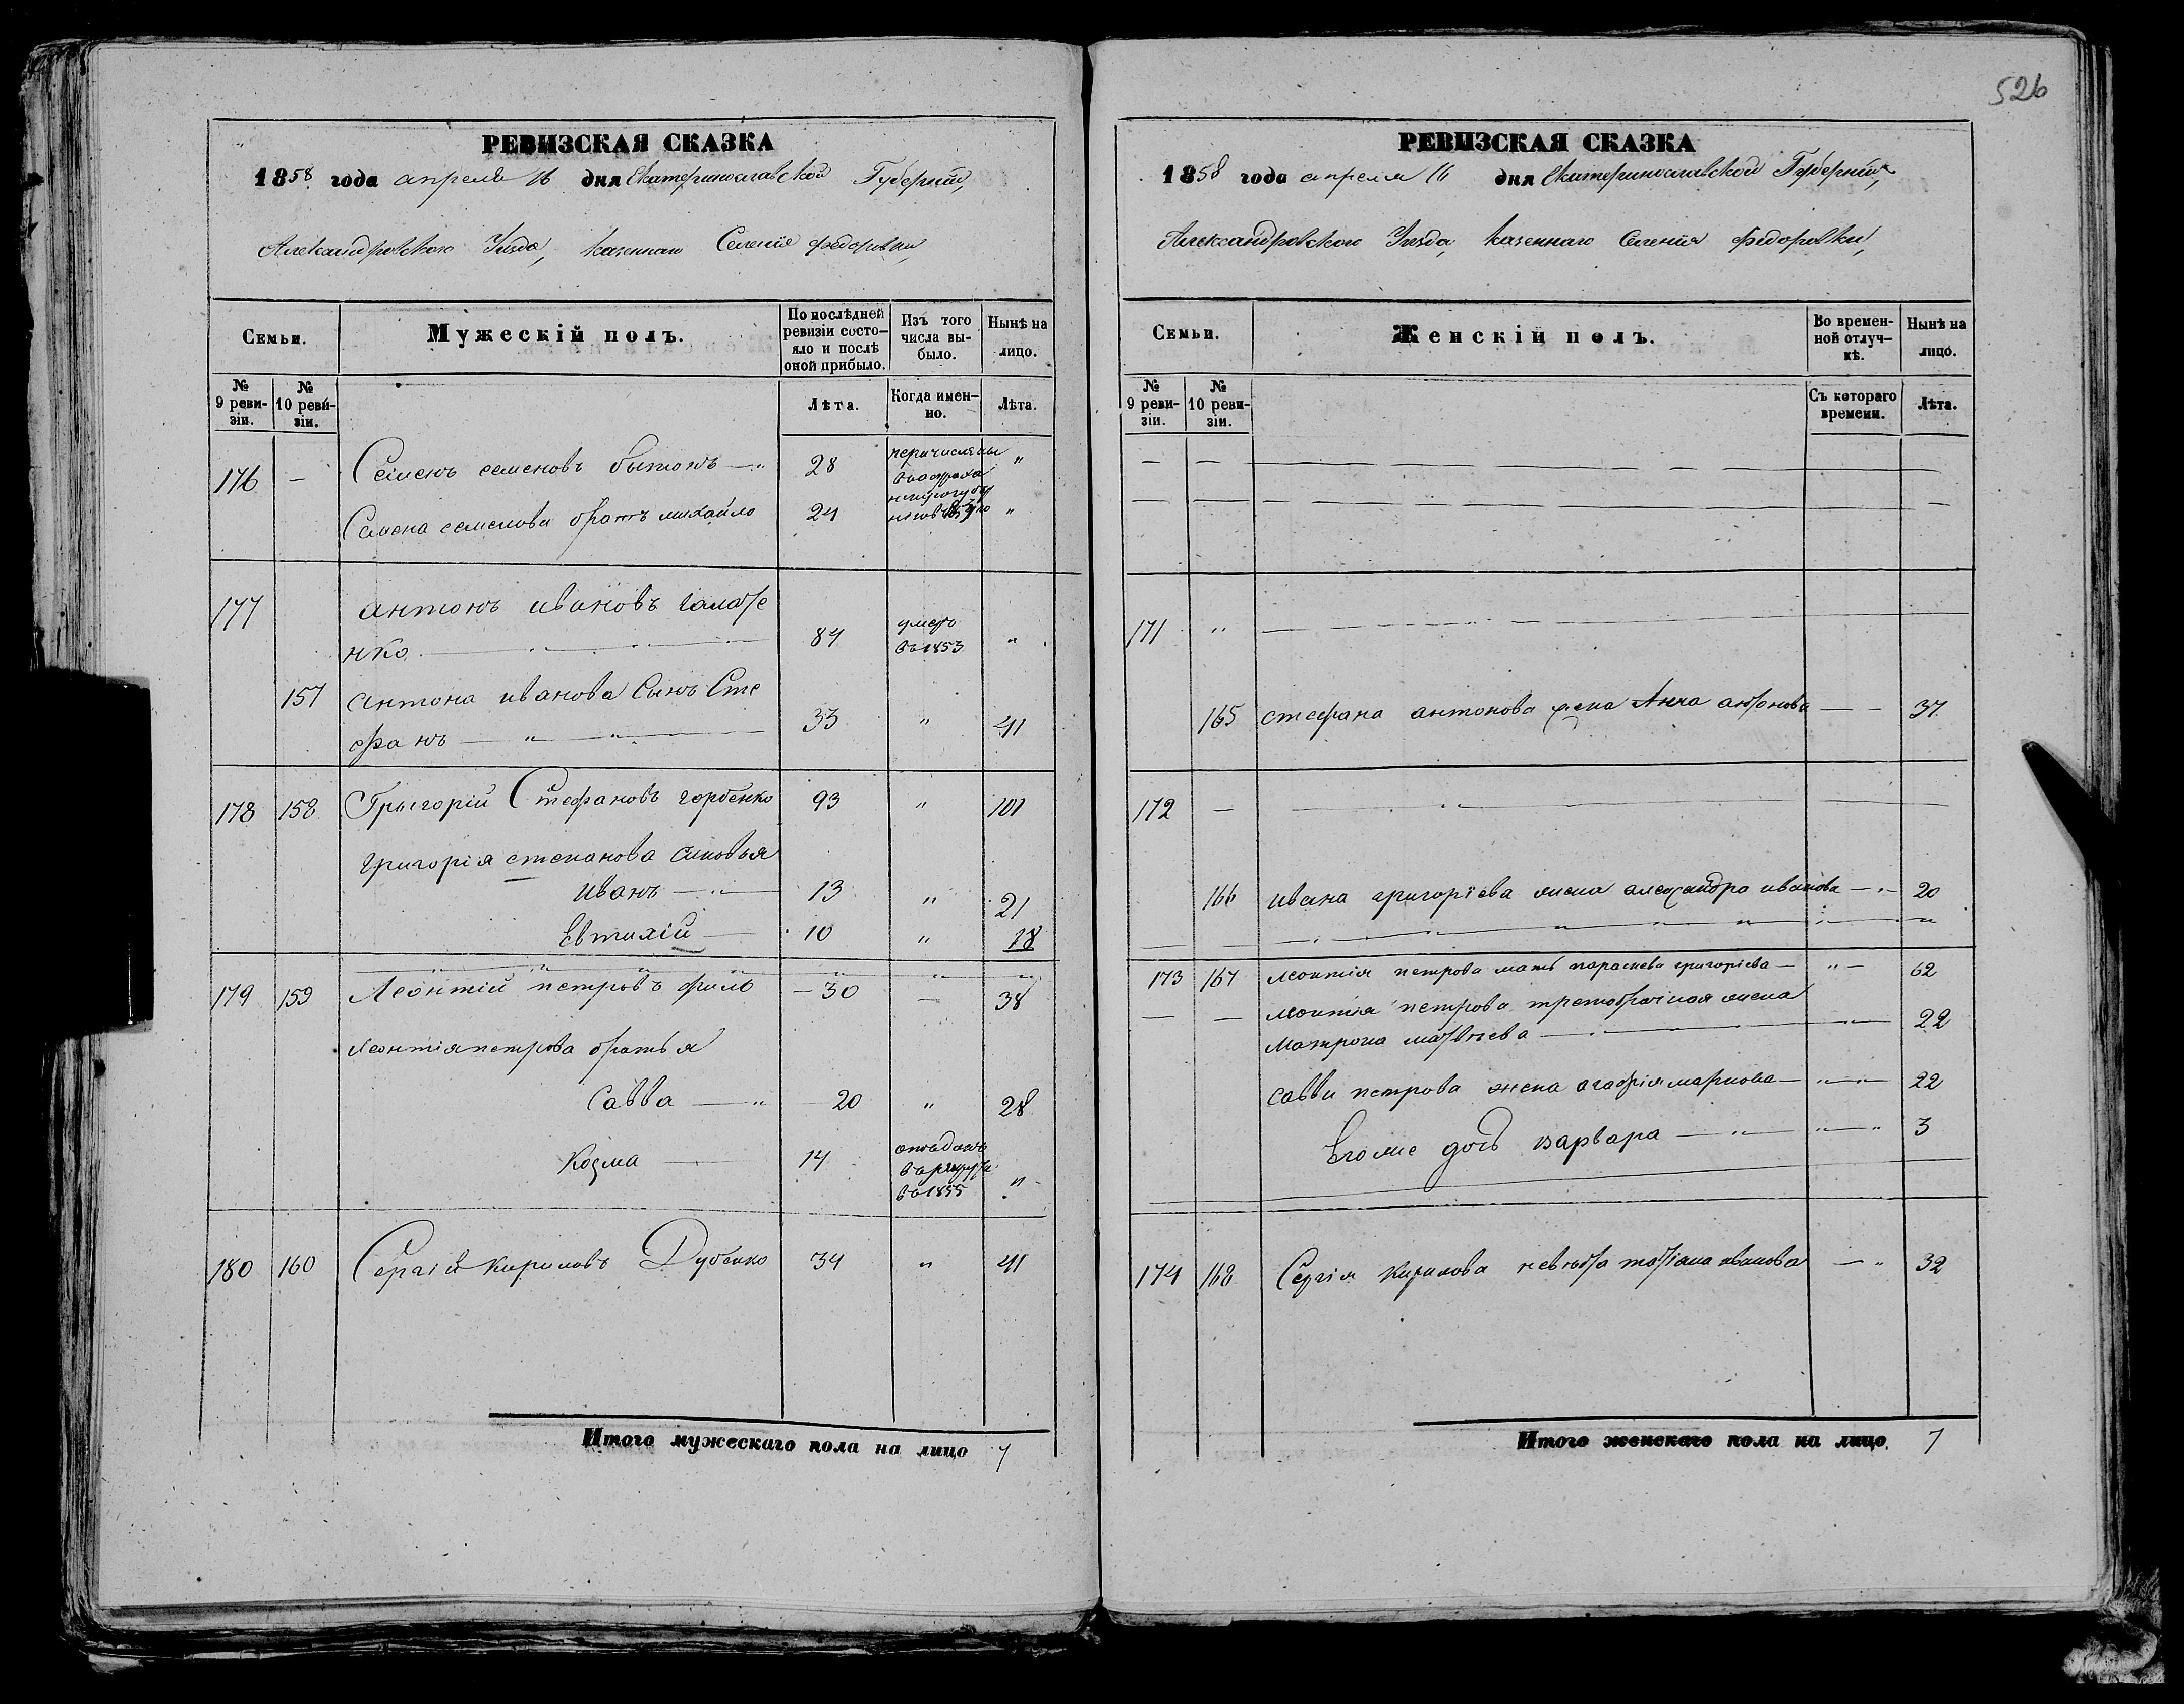 526
РЕВИЗСКАЯ СКАЗКА
1858 года апреля 16 дня Екатеринославской Губернии,
Александровского Уезда, казенного Селения федоровки,
Семьи.
Мужескій полъ.
По послѣдней ревизіи состояло и послѣ оной прибыло.
Изъ того числа выбыло.
Нынѣ на лицо.
№ 9 ревизіи.
№ 10 ревизіи.
Лѣта.
Когда именно.
Лѣта.
176 — Семенъ семеновъ — " 28 перечислены "
Семена семенова братъ михайло 24 "
177 антонъ ивановъ
нко 84 умеръ въ 1853 "
157 антона иванова сынъ Сте
фанъ — " — " — 33 " 41
178 158 Григорій Стефановъ горбенко 93 " 101
григорія степанова сыновья
иванъ — " — 13 " 21
Евтихій — 10 " 18
179 159 Леонтій петровъ — 30 — 38
леонтія петрова братья
Савва — " 20 " 28
Козма — 14 отдан въ рекруты въ 1855 "
180 160 Сергій кириловъ Дубенко 34 " 41
Итого мужескаго пола на лицо 7
РЕВИЗСКАЯ СКАЗКА
1858 года апреля 16 дня Екатеринославской Губернии,
Александровского Уезда, казенного Селения федоровки,
Семьи.
Женскій полъ.
Во временной отлучкѣ.
Нынѣ на лицо.
№ 9 ревизіи.
№ 10 ревизіи.
Съ котораго времени.
Лѣта.
171 "
165 стефана антонова жена Анна — — 37
172 —
166 ивана григоріева жена александра иванова — " — 20
173 167 леонтія петрова мать параскева григоріева — " — 62
леонтія петрова третобрачная жена
матрона матвѣева — 22
саввы петрова жена агафія маркова — " — " — 22
Егоже дочь варвара — " — " — " 3
174 168 Сергія кирилова невѣстка татіана иванова — " 32
Итого женскаго пола на лицо. 7